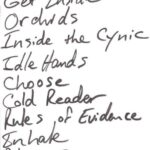 Get Inside
Orchids
Inside the Cynic
Idle Hands
Choose
Cold Reader
Rules of Evidence
Inhale